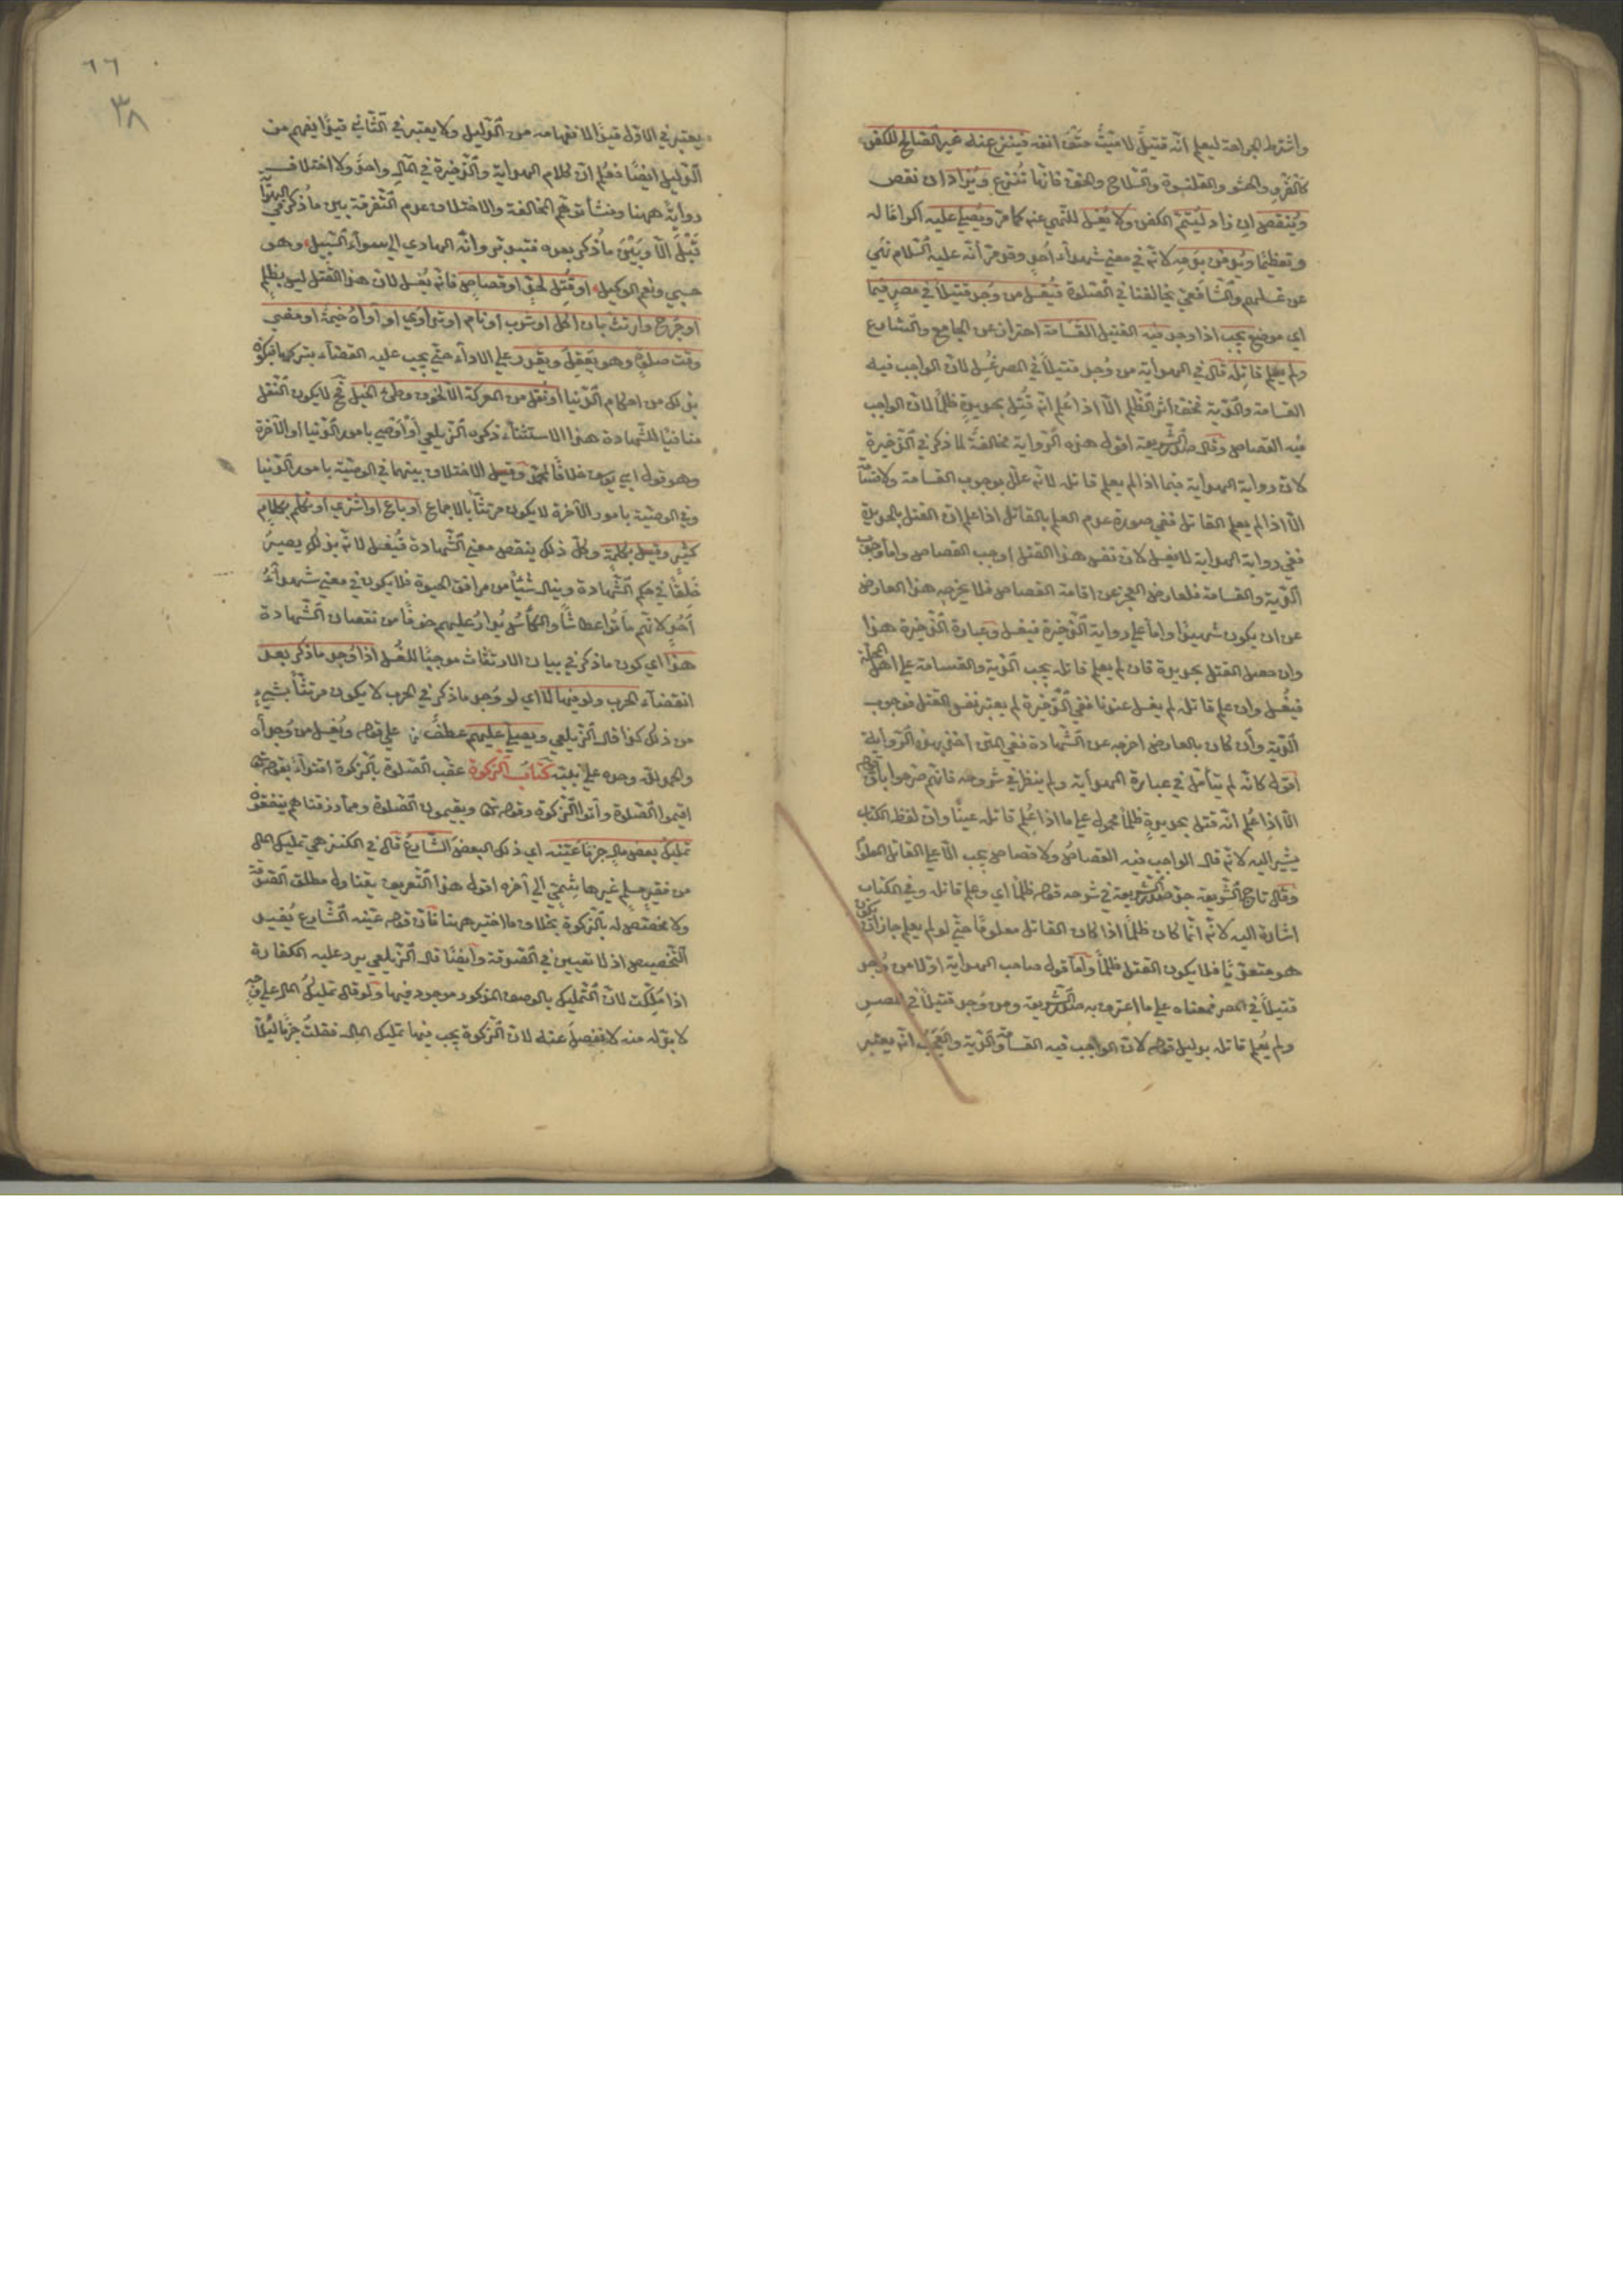 واشترط الجراحة ليعلم انه قتيل لا ميت حتف انفه فينزع عنه غير الصالح للكفن
كالفرو والحشو والقلنسوة والسلاح والخف فانها تنزع ويزاد ان نقص
وينقص ان زاد ليتم الكفن ولا يغسل للنهي عنه كما مر ويصلى عليه اكراما له
وتعظيما ويدفن بدمه لانه في معنى شهداء احد وقد مر انه عليه السلام نهى
عن غسلهم والشافعي يخالفنا في الصلوة فيغسل من وجد قتيلا في مصر فيما
اي موضع يجب اذا وجد فيه القتيل القسامة احتراز عن الجامع والشارع
ولم يعلم قاتله قال في الهداية من وجد قتيلا في المصر غسل لان الواجب فيه
القسامة والدية فخف اثر الظلم الا اذا علم انه قتل بحديدة ظلما لان الواجب
فيه القصاص وقال صدر الشريعة اقول هذه الرواية مخالفة لما ذكر في الذخيرة
لان رواية الهداية فيما اذا لم يعلم قاتله لانه علل بوجوب القسامة ولا قسامة
الا اذا لم يعلم القاتل ففي صورة عدم العلم بالقاتل اذا علم ان القتل بالحديدة
ففي رواية الهداية لا يغسل لان نفس هذا القتل اوجب القصاص واما وجوب
الدية والقسامة فلعارض العجز عن اقامة القصاص فلا يخرجه هذا العارض
عن ان يكون شهيدا واما على رواية الذخيرة فيغسل وعبارة الذخيرة هذا
وان حصل القتل بحديدة فان لم يعلم قاتله يجب الدية والقسامة على اهل المحلة
فيغسل وان علم قاتله لم يغسل عندنا ففي الذخيرة لم يعتبر نفس القتل فوجوب
الدية وان كان بالعارض اخرجه عن الشهادة ففي المتن اخذ بهذه الرواية
اقول كانه لم يتأمل في عبارة الهداية ولم ينظر في شروحه فانهم صرحوا بان قوله
الا اذا علم انه قتل بحديدة ظلما محمول على ما اذا علم قاتله عينا وان لفظ الكتاب
يشير اليه لانه قال الواجب فيه القصاص ولا قصاص يجب الا على القاتل المعلوم
وقال تاج الشريعة جد صدر الشريعة في شرحه قوله ظلما اي وعلم قاتله وفي الكتاب
اشارة اليه لانه انما كان ظلما اذا كان القاتل معلوما حتى لو لم يعلم جاز ان يكون
هو متعديا فلا يكون القتل ظلما واما قول صاحب الهداية اولا من وجد
قتيلا في المصر فمعناه على ما اعترف به صدر الشريعة ومن وجد قتيلا في المصر
ولم يعلم قاتله بدليل قوله لان الواجب فيه القسامة والدية والعجب انه يعتبر
يعتبر في الاول قيدا لا نفهامه من الدليل ولا يعتبر في الثاني قيدا يفهم من
الدليل ايضا فعلم ان كلام الهداية والذخيرة في المآل واحد ولا اختلاف
رواية ههنا ومنشأ توهم المخالفة والاختلاف عدم التفرقة بين ما ذكر في الهداية
قبل الا وبين ما ذكر بعده فتدبر وانه الهادي الى سواء السبيل وهو
حسبي ونعم الوكيل او قتل لحد او قصاص فانه يغسل لان هذا القتل ليس بظلم
او جرح وارتث بان اكل او شرب او نام او تداوى او آواه خيمة او مضى
وقت صلوة وهو يعقل ويقدر على الاداء حتى يجب عليه القضاء بتركها فيكون
بذلك من احكام الدنيا او نقل من المعركة الا لخوف وطئ الخيل فح لا يكون النقل
منافيا للشهادة هذا الاستثناء ذكره الزيلعي او اوصى بامور الدنيا او الآخرة
وهو قول ابي يوسف خلافا لمحمد وقيل الاختلاف بينهما في الوصية بامور الدنيا
وفي الوصية بامور الآخرة لا يكون مرتثا بالاجماع او باع او اشترى او تكلم بكلام
كثير وقيل بكلمة وكل ذلك ينقص معنى الشهادة فيغسل لانه بذلك يصير
خلقا في حكم الشهادة وينال شيئا من مرافق الحيوة فلا يكون في معنى شهداء
احد لانهم ماتوا عطاشا والكأس يدار عليهم خوفا من نقصان الشهادة
هذا اي كون ما ذكر في بيان الارتثاث موجبا للغسل اذا وجد ما ذكر بعد
انقضاء الحرب ولو فيها لا اي لو وجد ما ذكر في الحرب لا يكون مرتثا بشيء
من ذلك كذا قال الزيلعي ويصلى عليهم عطف على قوله ويغسل من وجد اه
والحمد لله وحده على نعمته كتاب الزكوة عقب الصلوة بالزكوة اقتداء بقوله تعالى
اقيموا الصلوة وآتوا الزكوة وقوله تعالى ويقيمون الصلوة ومما رزقناهم ينفقون
تمليك بعض مال جزما عينه اي ذلك البعض الشارع قال في الكنز هي تمليك المال
من فقير مسلم غير هاشمي الى آخره اقول هذا التعريف يتناول مطلق الصدقة
ولا مخصص له بالزكوة بخلاف ما اختير ههنا فان قوله عينه الشارع يفيد
التخصيص اذ لا تعيين في الصدقة وايضا قال الزيلعي يرد عليه الكفارة
اذا ملكت لان التمليك بالوصف المذكور موجود فيها ولو قال تمليك المال على وجه
لا بد له منه لانفصل عنه لان الزكوة يجب فيها تمليك المال فقلت جزما لئلا
٦٦
٣٨